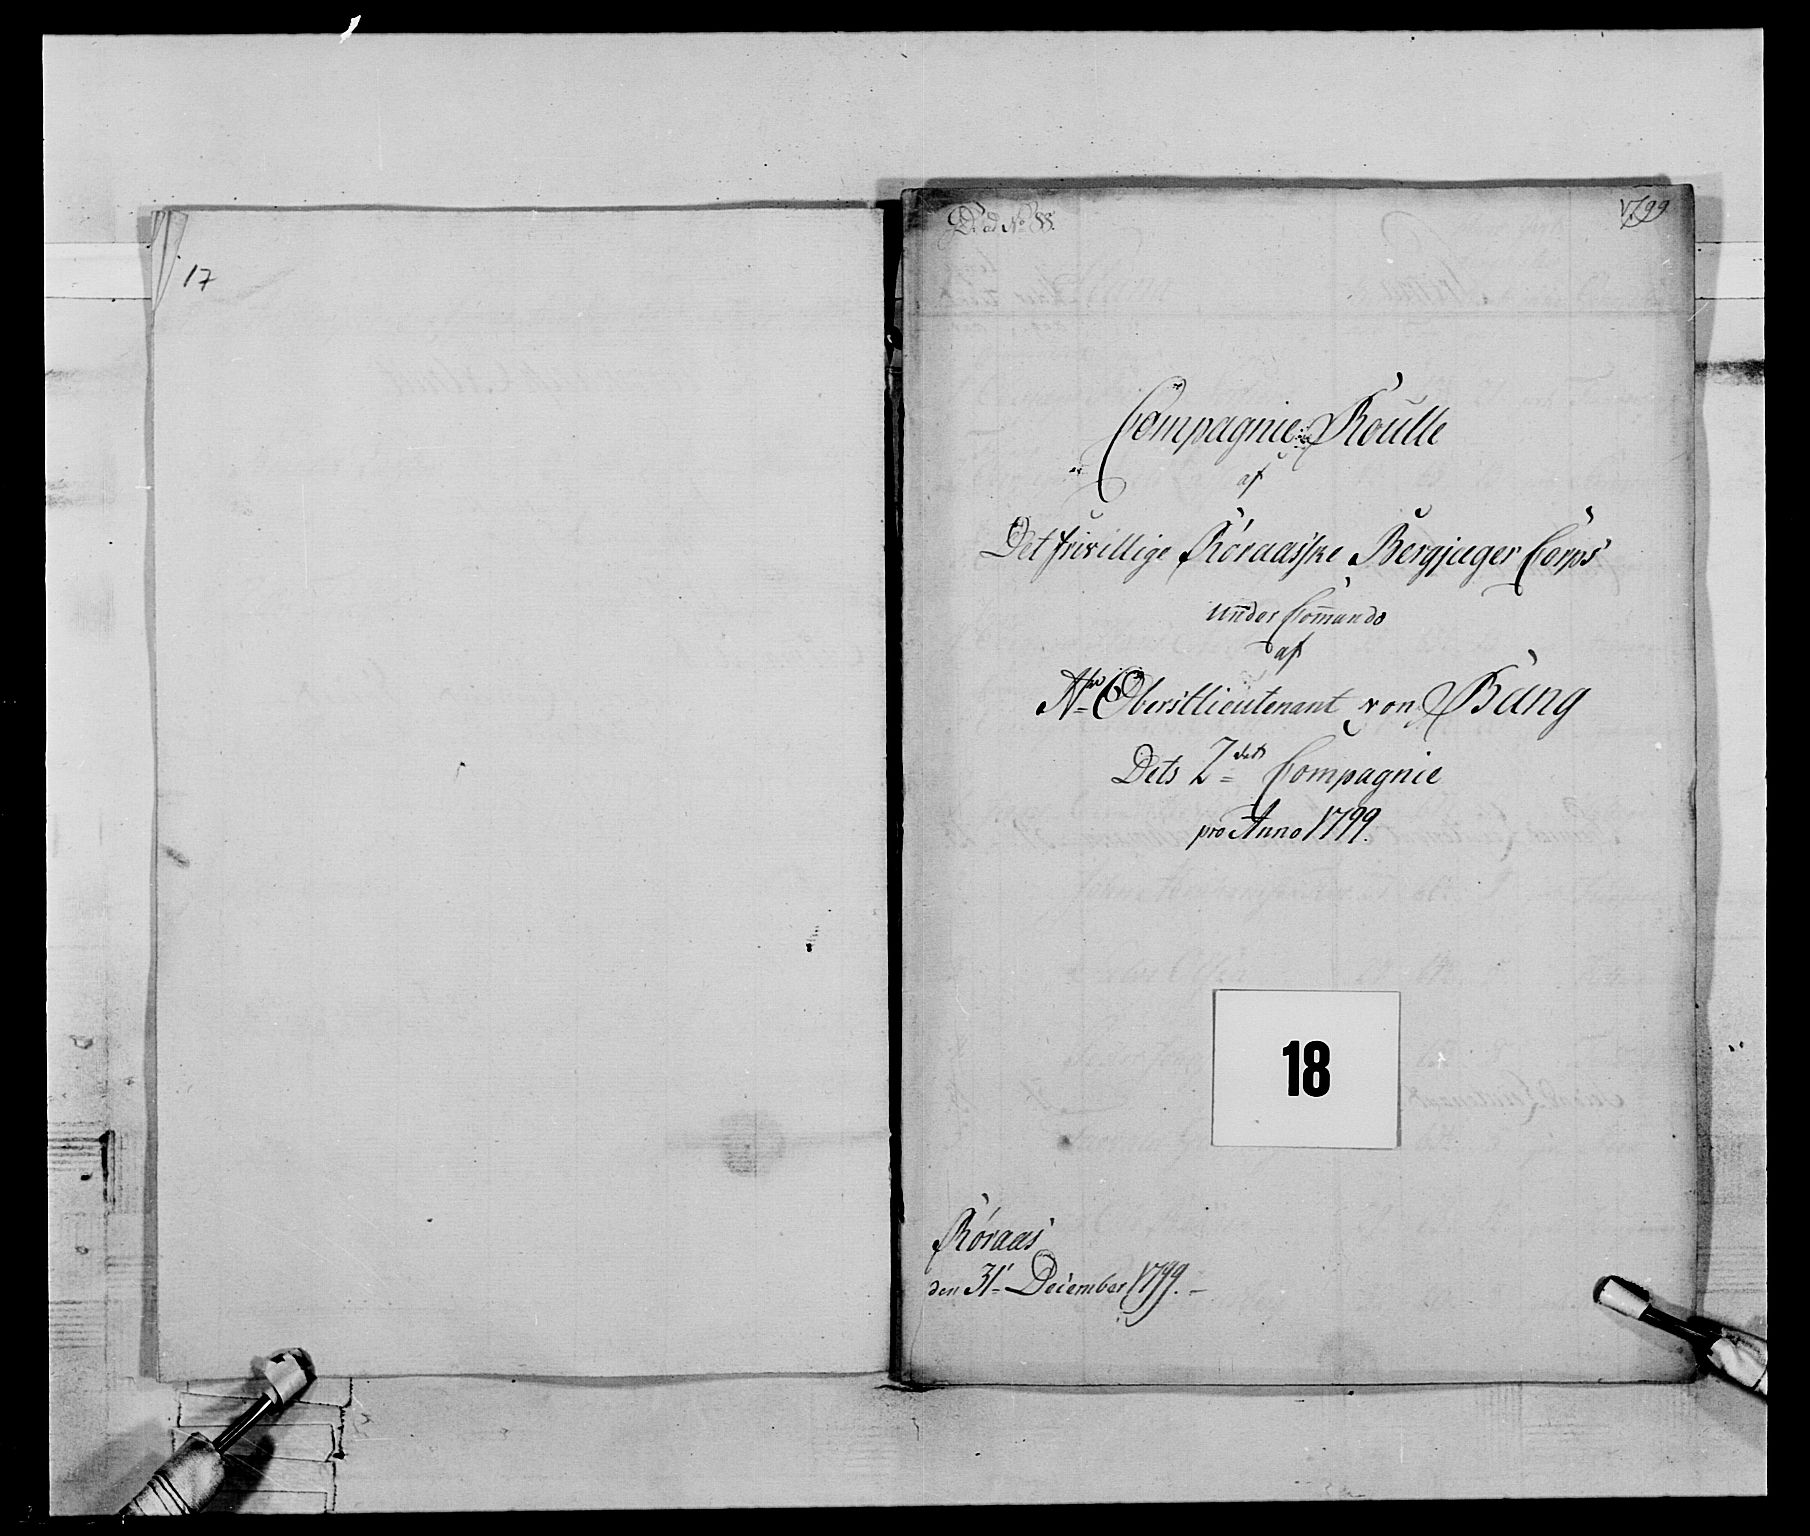 17
D. ad No 55.
1799
Compagnie Roulle
af
Det frivillige Röraasske Bergjæger Corps
under Com̄ando
af
Hr Oberstlieutenant von Bang
Dets 2det Compagnie
pro Anno 1799.
18
Röraas
den 31- December 1799. -